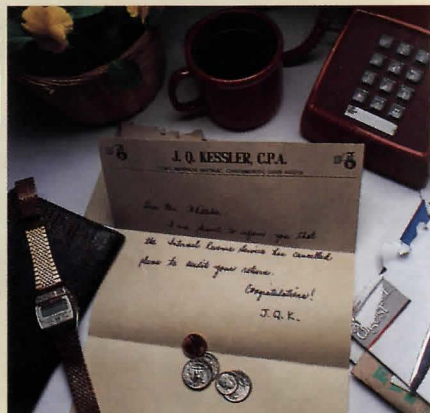 J. Q. KESSLER, C.P.A.
Dear Mr.
I am to inform you that
the Internal Revenue Service has cancelled
plans to audit your return.
Congratulations!
J. Q. K.